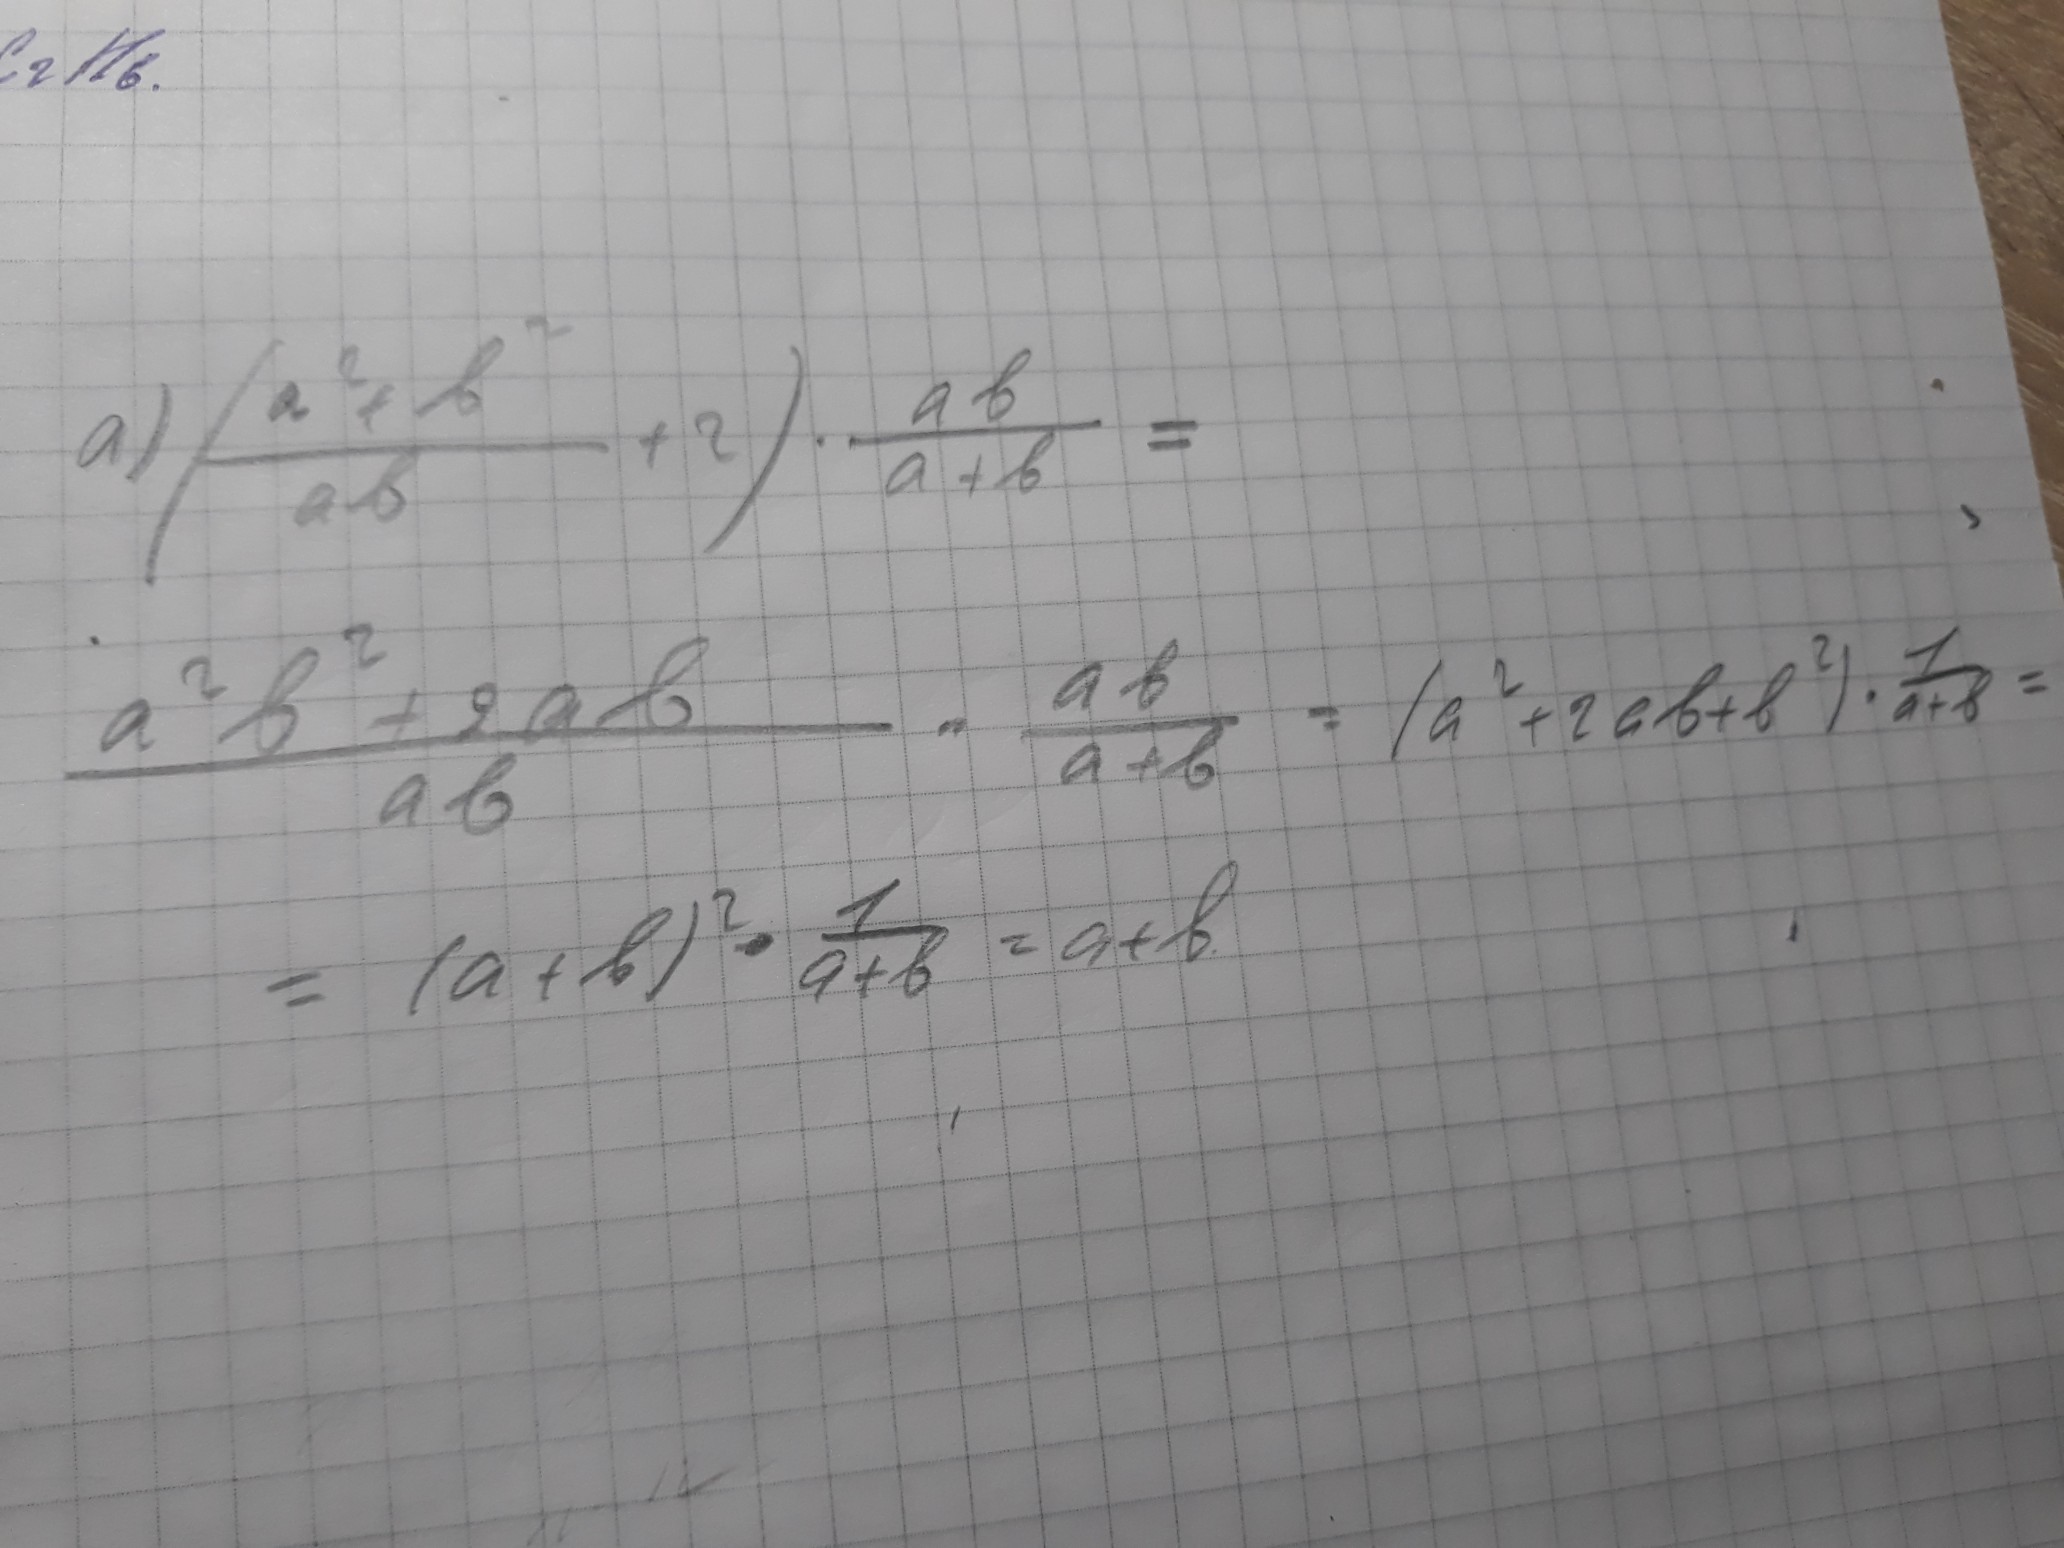 C₂H₆.
a) (a²+b²/ab + 2) · ab/a+b =
a²b²+2ab/ab · ab/a+b = (a²+2ab+b²) · 1/a+b =
= (a+b)² · 1/a+b = a+b.